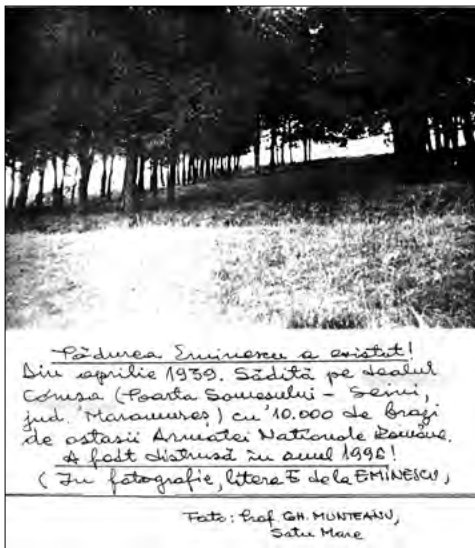 Pădurea Eminescu a existat!
Din aprilie 1939. Sădită pe dealul
Comja (Poarta Somesului - Seini,
jud. Maramureș) cu 10.000 de brazi
de ostașii Armatei Naționale Române.
A fost distrusă în anul 1996!
(În fotografie, litera E de la EMINESCU,
Foto: Prof. GH. MUNTEANU,
Satu Mare